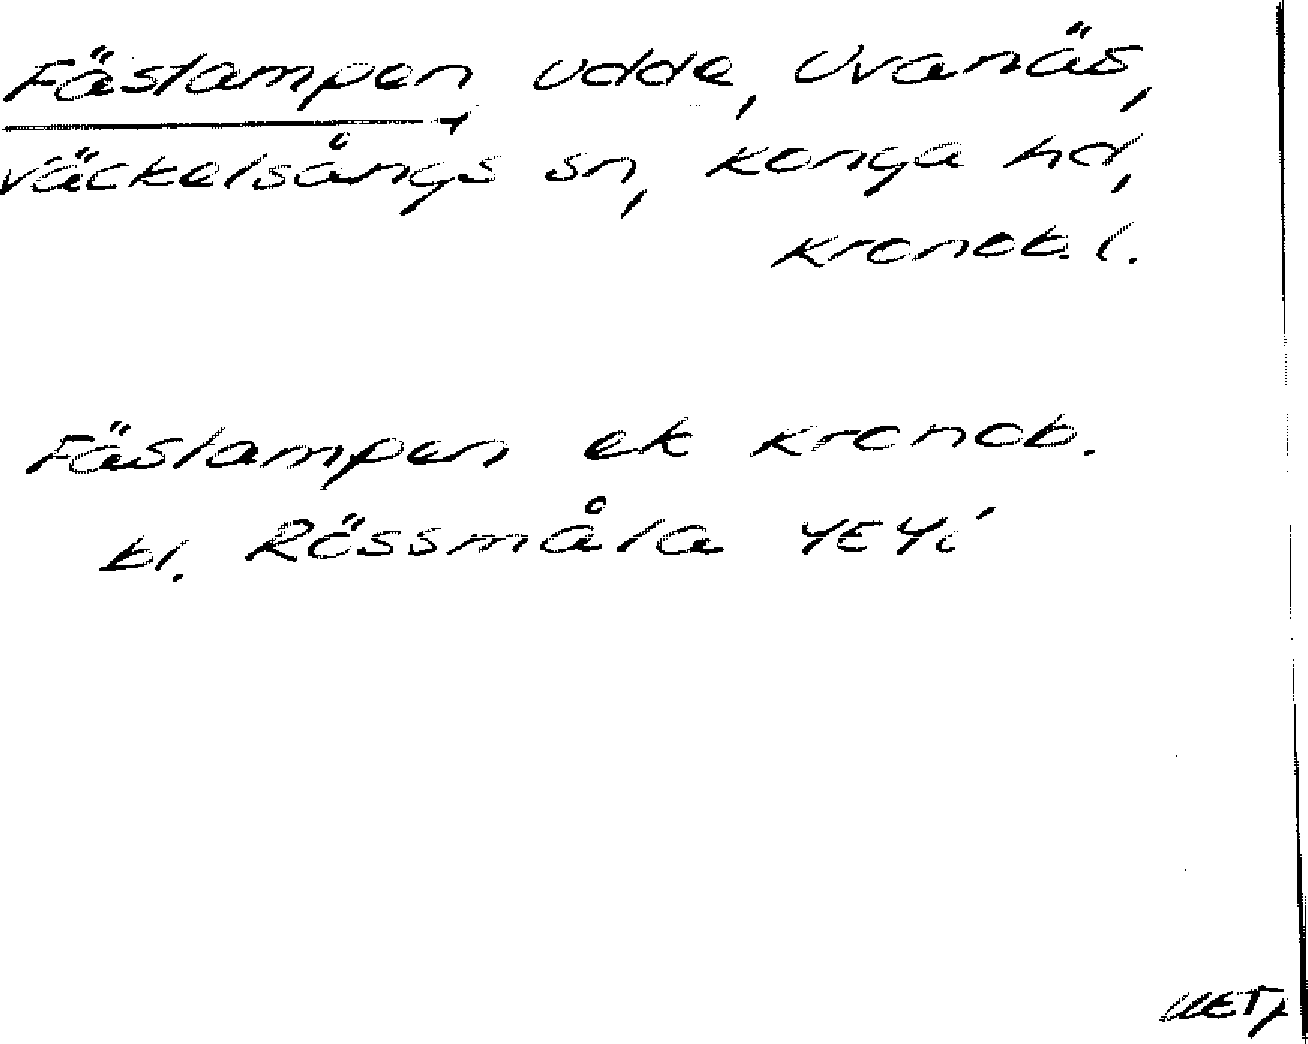 Fästampen udde, Uranäs,
Väckelsångs sn, Konga hd,
Kronob. l.
Fästampen ek Kronob.
bl. Rössmåla 4E4i